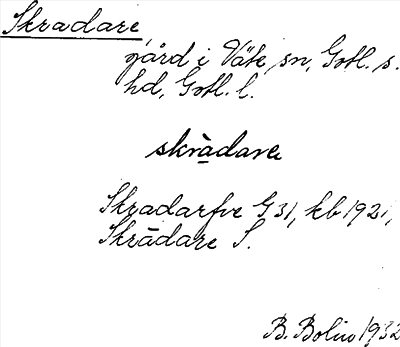 Skradare,
gård i Väte sn, Gotl. s.
hd, Gotl. l.
skrà̱dare
Skradarfve G 31, kb 1921,
Skrādare S.
B. Bolin 1932